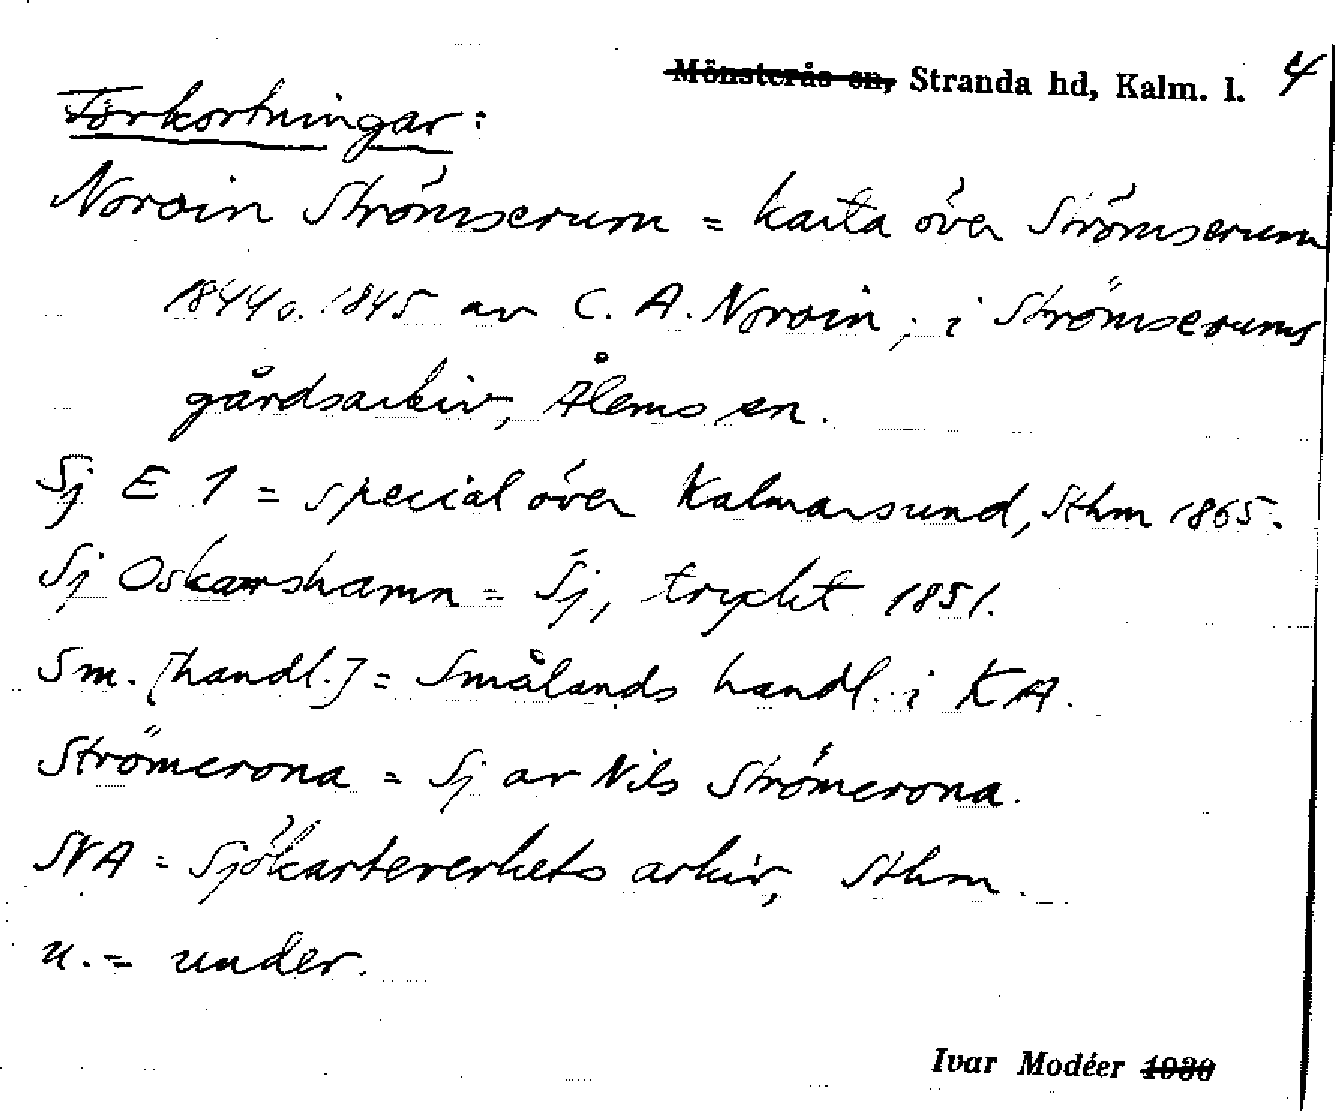 Mönsterås sn, Stranda hd, Kalm. l. 4
Förkortningar:
Norvin Strömserum = karta över Strömserum
1844 o. 1845 av C. A. Norvin, i Strömserums
gårdsarkiv, Ålems sn.
Sj E 1 = special över Kalmarsund, Sthm 1865.
Sj Oskarshamn = Sj, tryckt 1851.
Sm. [handl.] = Smålands handl. i KA.
Strömcrona = Sj av Nils Strömcrona.
SVA = Sjökarteverkets arkiv, Sthm.
u. = under.
Ivar Modéer 1930